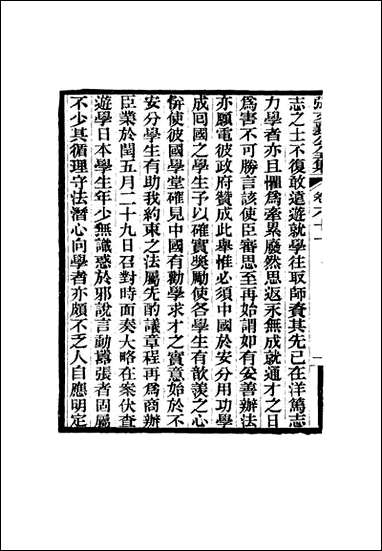 張文襄公全集 卷六十一
志之士不復敢遠遊就學往取師資其先已在洋篤志
力學者亦且懼爲牽累廢然思返汞無成就通才之日
爲害不可勝言該使臣審思至再始謂如有妥善辦法
亦願電彼政府贊成此舉惟必須中國於安分用功學
成回國之學生予以確實奬勵使各學生有歆羡之心
俾使彼國學堂確見中國有勸學求才之實意始於不
安分學生有助我約束之法屬先酌議章程再爲商辦
臣業於閏五月二十九日召對時面奏大略在案伏查
遊學日本學生年少無識惑於邪說言動囂張者固屬
不少其循理守法潛心向學者亦頗不乏人自應明定